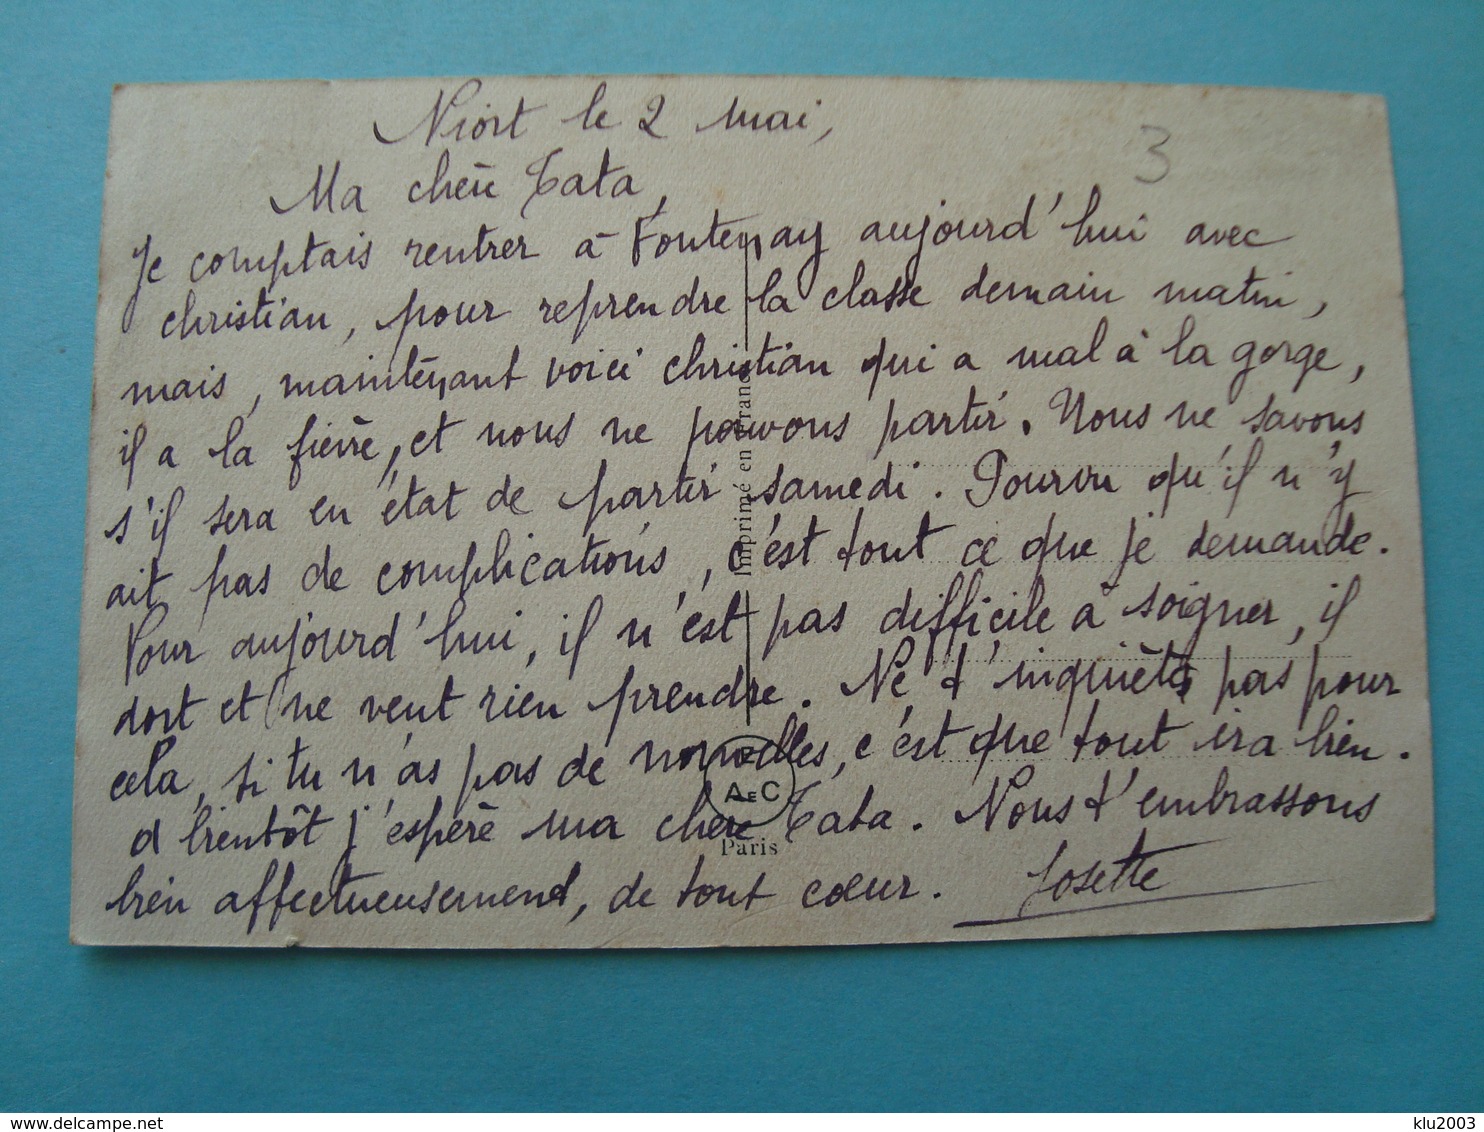 Niort le 2 mai,
3
Ma chère Tata,
Je comptais rentrer à Fontenay aujourd'hui avec
christian, pour reprendre la classe demain matin,
mais, maintenant voici christian qui a mal à la gorge,
il a la fièvre, et nous ne pouvons partir. Nous ne savons
s'il sera en état de partir samedi. Pourvu qu'il n'y
ait pas de complications, c'est tout ce que je demande.
Pour aujourd'hui, il n'est pas difficile à soigner, il
dort et ne veut rien prendre. Ne t'inquiète pas pour
cela, si tu n'as pas de nouvelles, c'est que tout ira bien.
A bientôt j'espère ma chère Tata. Nous t'embrassons
bien affectueusement, de tout cœur. Josette
Imprimé en France
AEC
Paris
klu2003